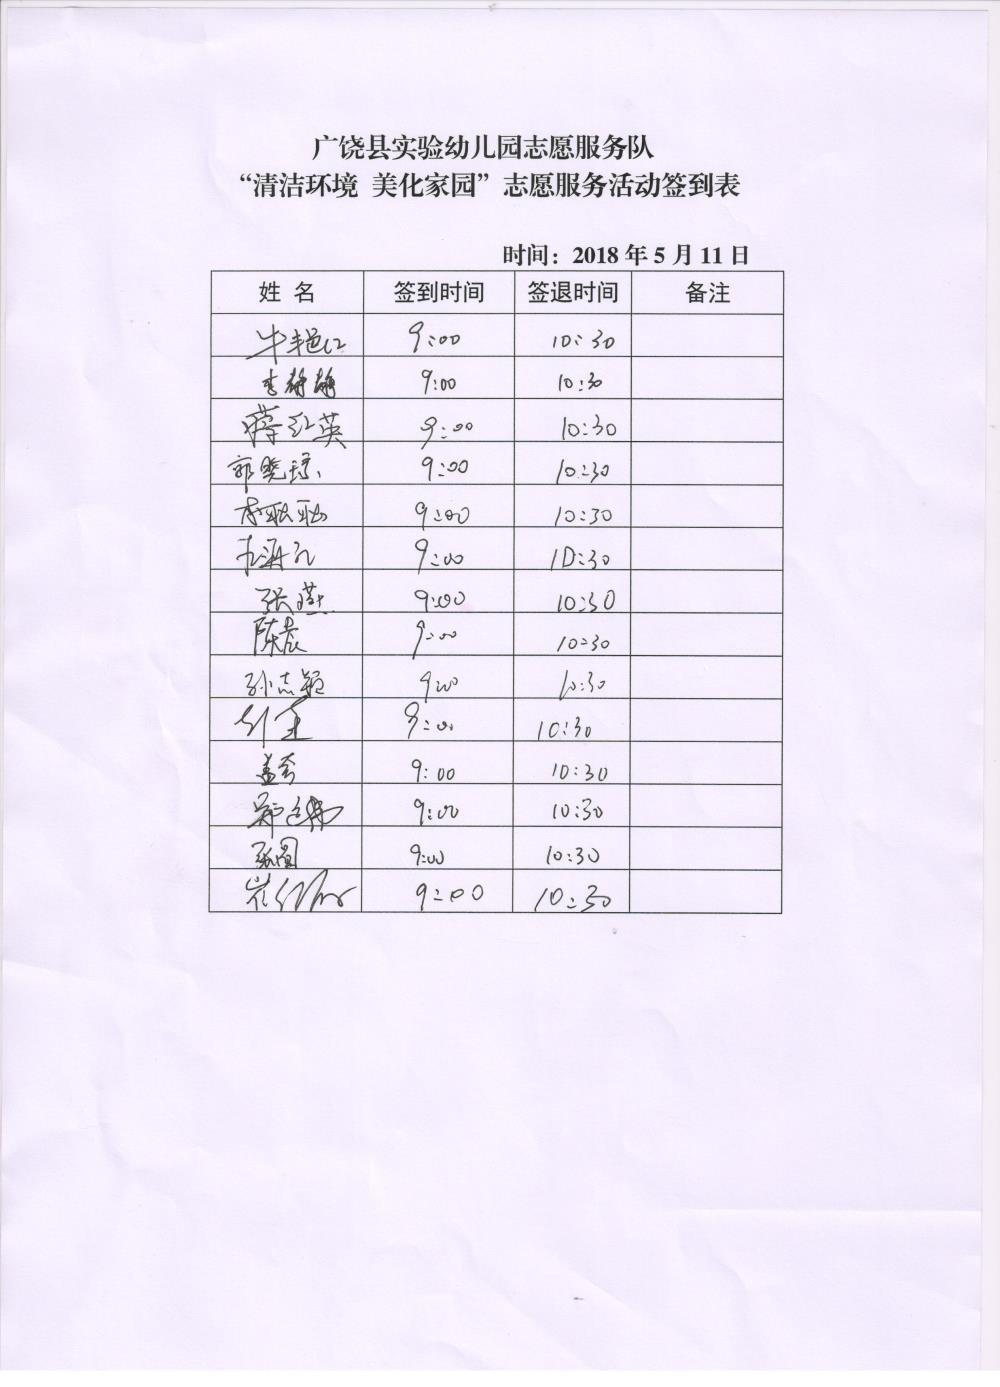 广饶县实验幼儿园志愿服务队
“清洁环境 美化家园”志愿服务活动签到表
时间：2018年5月11日
姓 名 签到时间 签退时间 备注
牛艳红 9:00 10:30
李静静 9:00 10:30
蒋红英 9:00 10:30
郭晓琼 9:00 10:30
李耿耿 9:00 10:30
9:00 10:30
张燕 9:00 10:30
陈晨 9:00 10:30
孙志颖 9:00 10:30
9:00 10:30
盖奇 9:00 10:30
9:00 10:30
张圆 9:00 10:30
崔 9:00 10:30